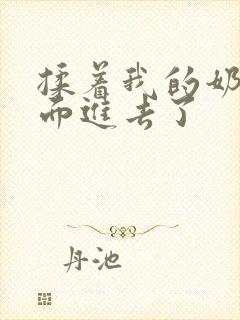 揉着我的奶
而进去了
丹池